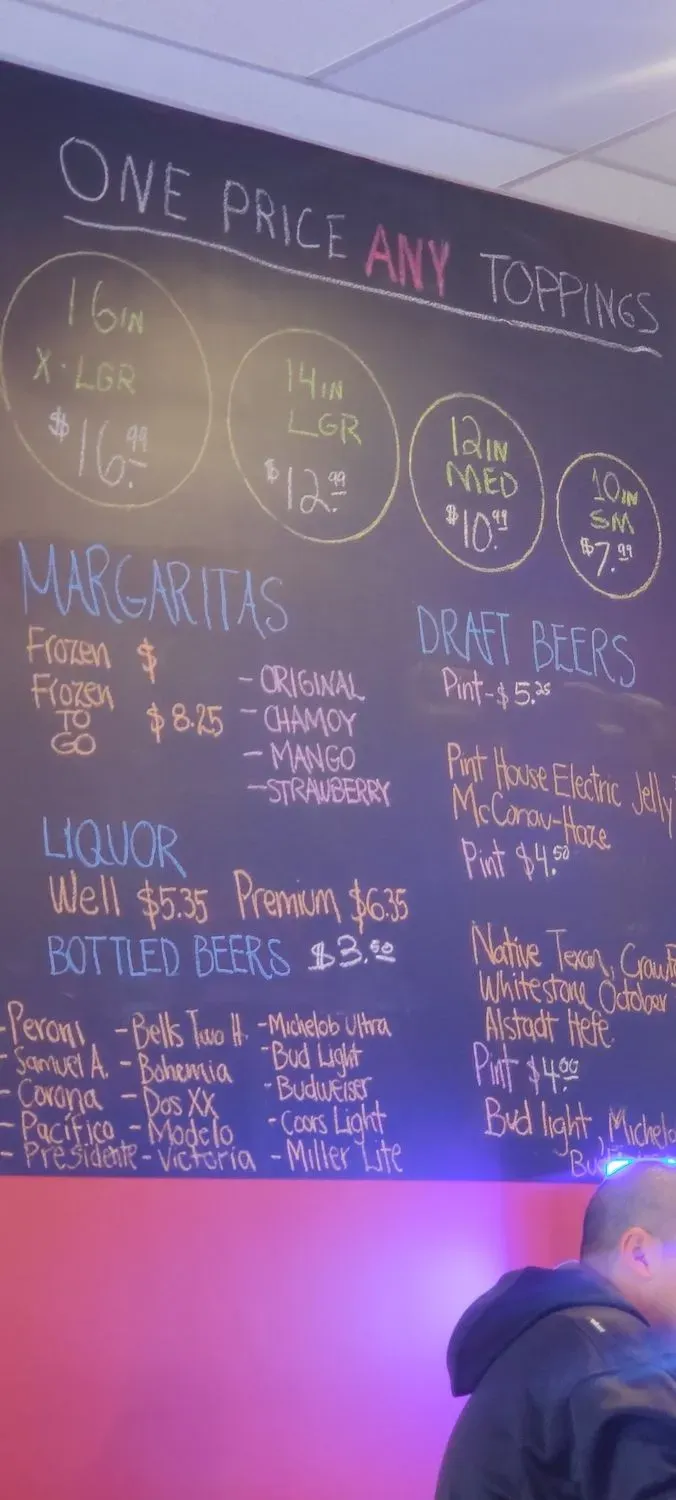 ONE PRICE ANY TOPPINGS
16IN
X-LGR
$16.99
14IN
LGR
$12.99
12IN
MED
$10.99
10IN
SM
$7.99
MARGARITAS
Frozen $
Frozen
TO
GO
$8.25
- ORIGINAL
- CHAMOY
- MANGO
- STRAWBERRY
LIQUOR
Well $5.35 Premium $6.35
BOTTLED BEERS $3.50
- Peroni
- Samuel A.
- Corona
- Pacifico
- Presidente
- Bells Two H.
- Bohemia
- Dos XX
- Modelo
- Victoria
- Michelob Ultra
- Bud Light
- Budweiser
- Coors Light
- Miller Lite
DRAFT BEERS
Pint-$5.25
Pint House Electric Jelly
McConau-Haze
Pint $4.50
Native Texan,
Whitestone October
Alstadt Hefe.
Pint $4.00
Bud light,